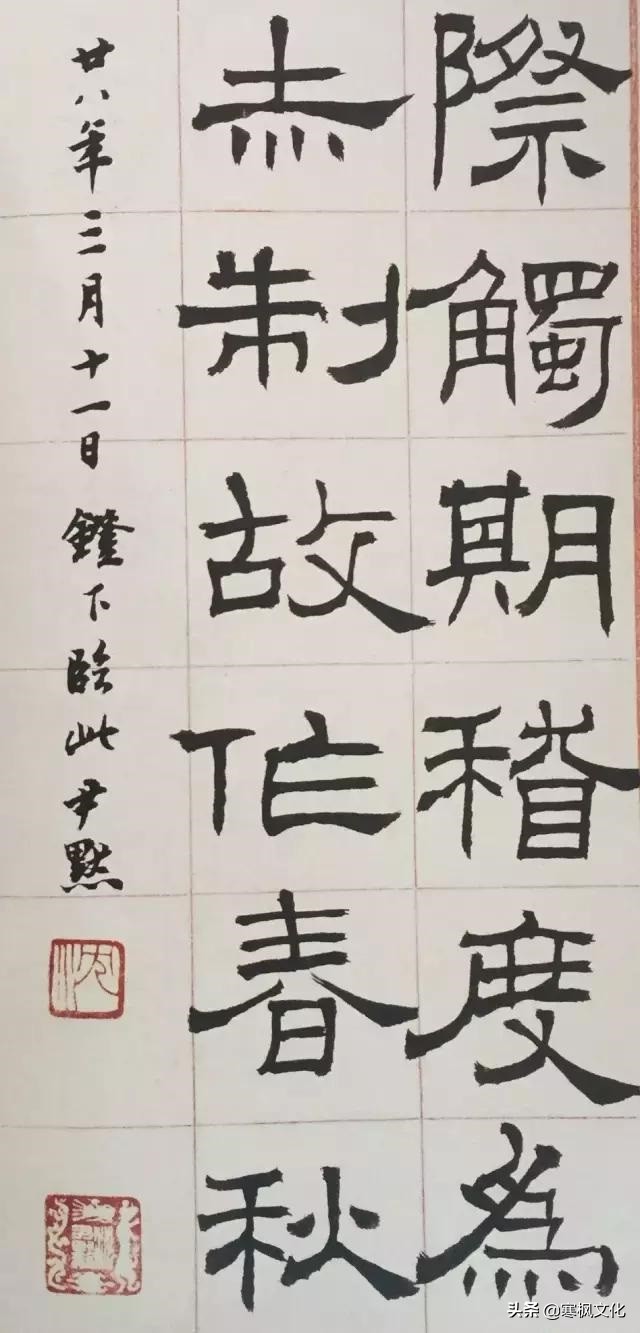 際觸期稽度爲
赤制故作春秋
廿八年三月十一日鐙下臨此尹默
沈
头条 @寒枫文化